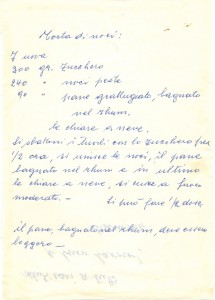 Torta di noci:
7 uova
300 gr. Zucchero
240 " noci peste
90 " pane grattugiato, bagnato
nel rhum,
le chiare a neve.
Si sbattono i tuorli con lo zucchero per
1/2 ora, si unisce le noci, il pane
bagnato nel rhum e in ultimo
le chiare a neve, si cuoce a fuoco
moderato. — Si può fare 1/2 dose
il pane, bagnato nel rhum, deve essere
leggero —